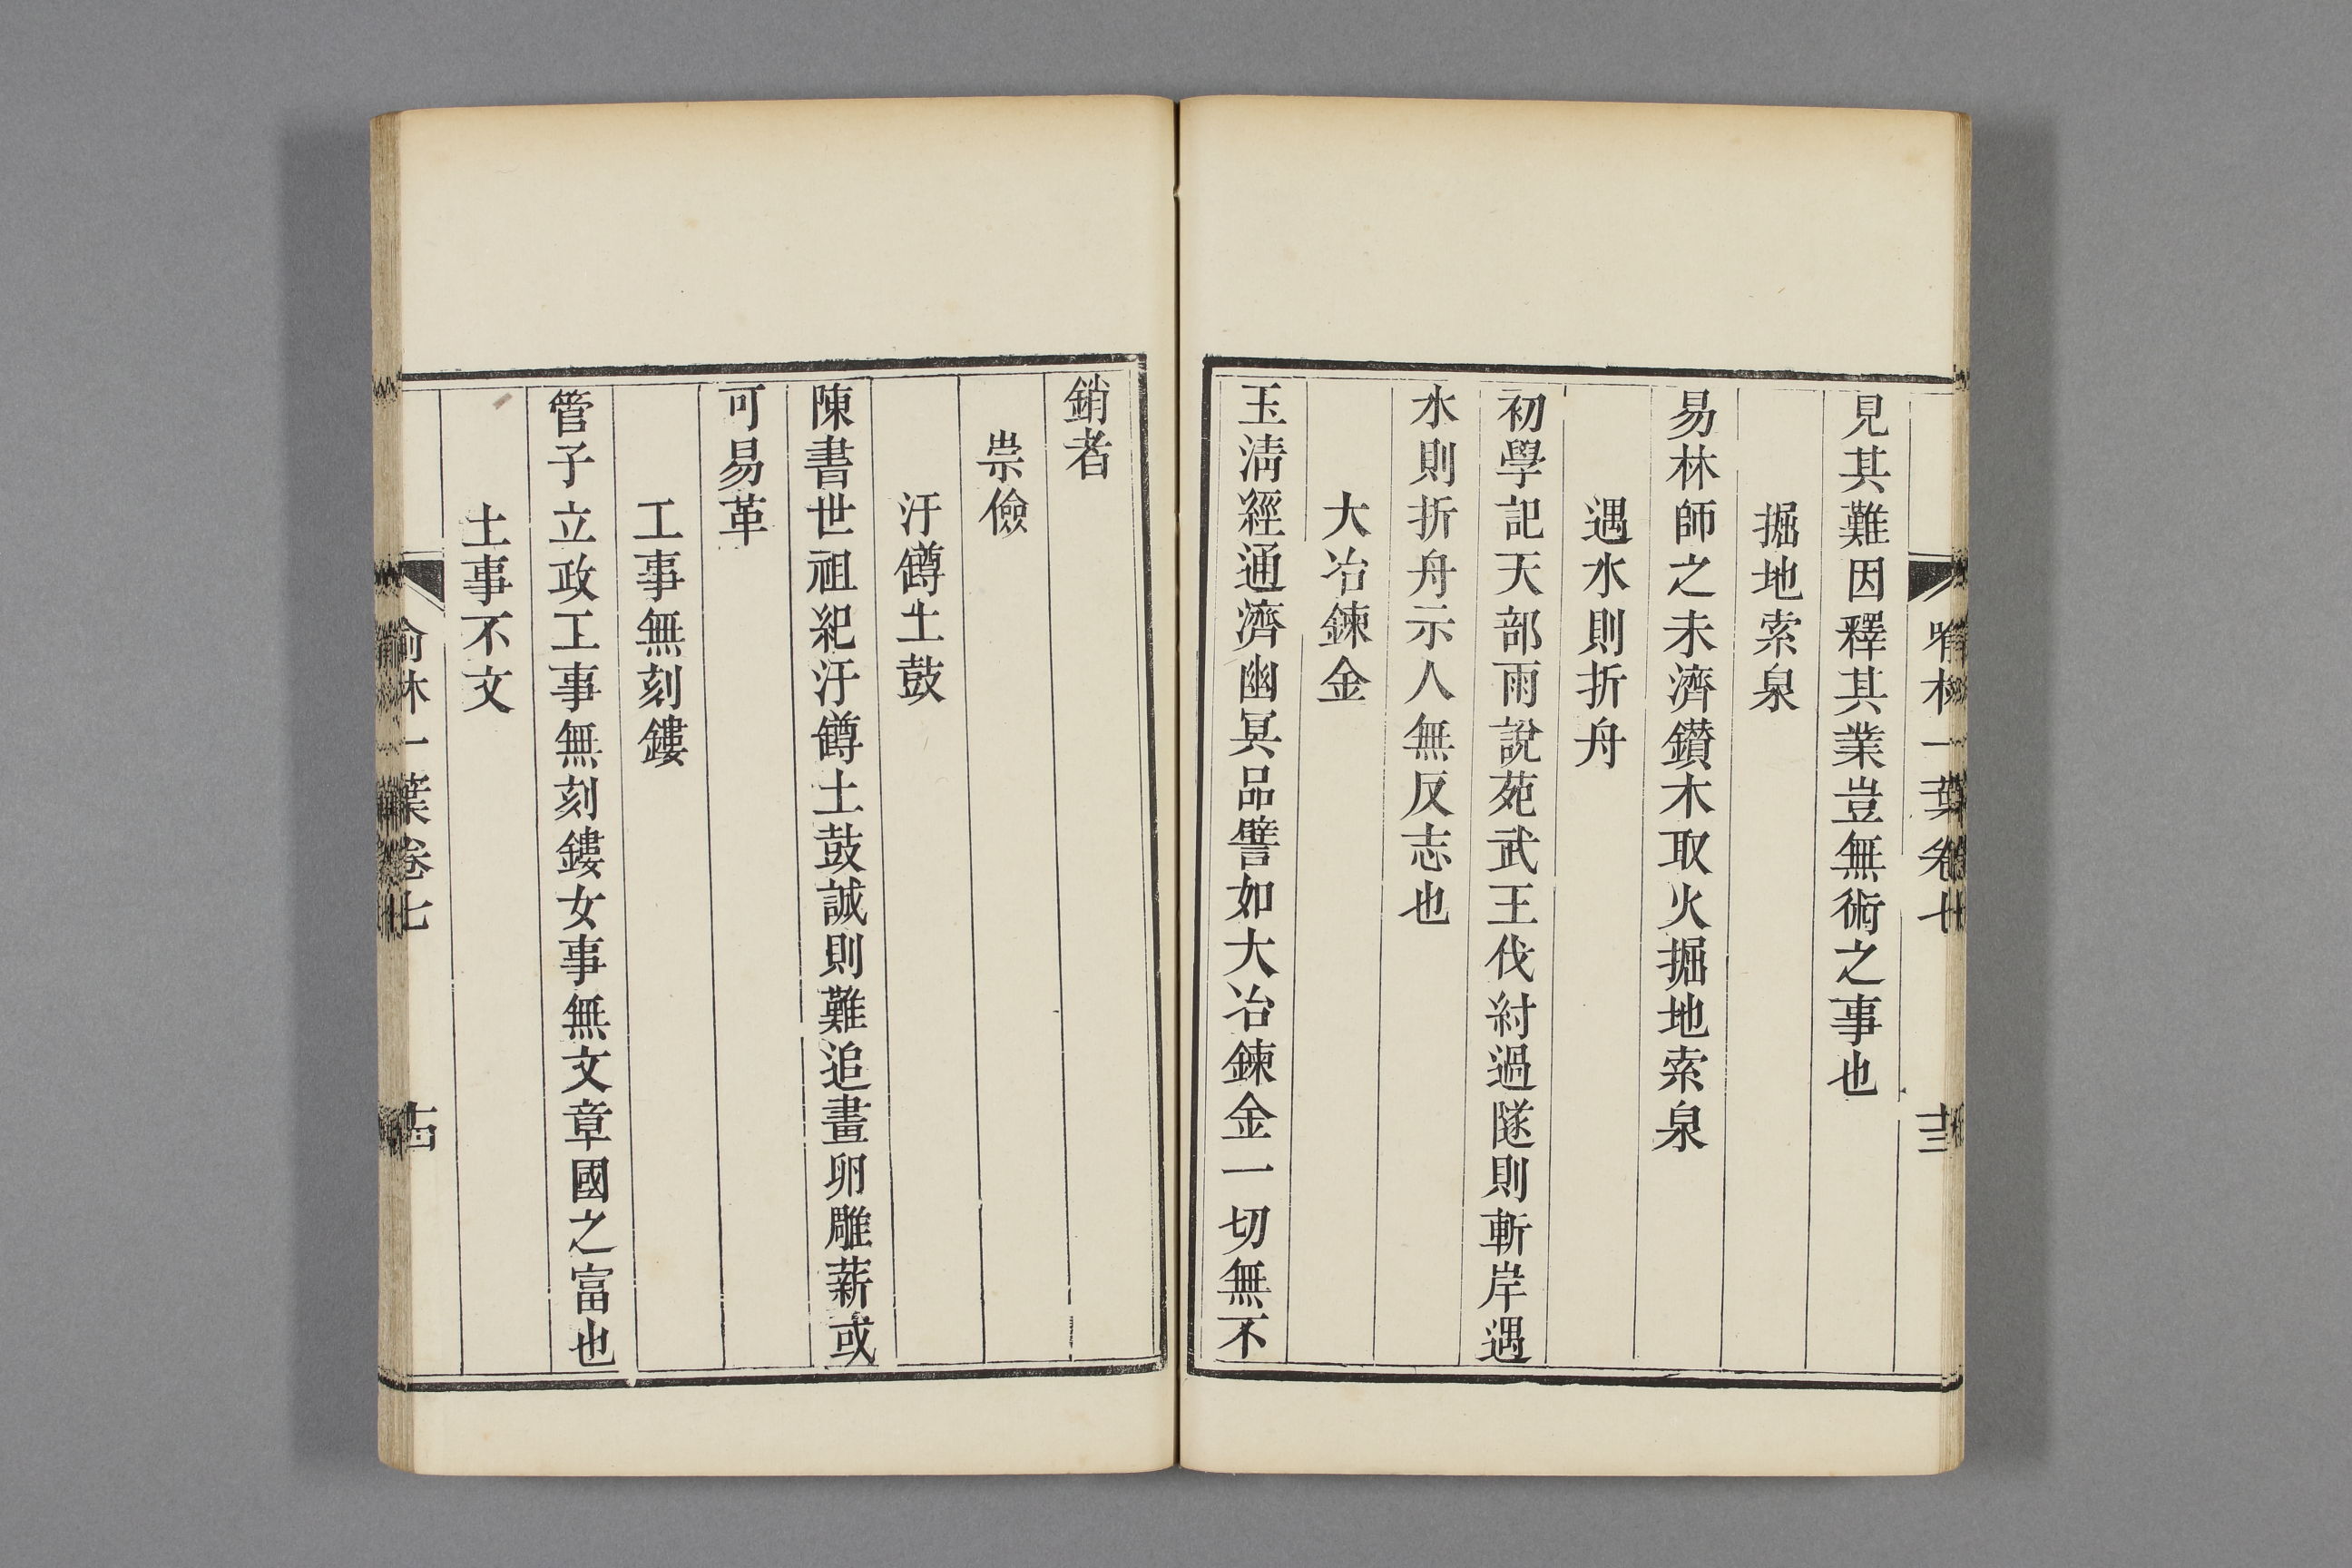 見其難因釋其業豈無術之事也
掘地索泉
易林師之未濟鑽木取火掘地索泉
遇水則折舟
初學記天部雨說苑武王伐紂過隧則斬岸遇
水則折舟示人無反志也
大冶鍊金
玉淸經通濟幽冥品譬如大冶鍊金一切無不
銷者
崇儉
汙罇土鼓
陳書世祖紀汙罇土鼓誠則難追畫卵雕薪或
可易革
工事無刻鏤
管子立政工事無刻鏤女事無文章國之富也
土事不文
喻林一葉卷七
十四